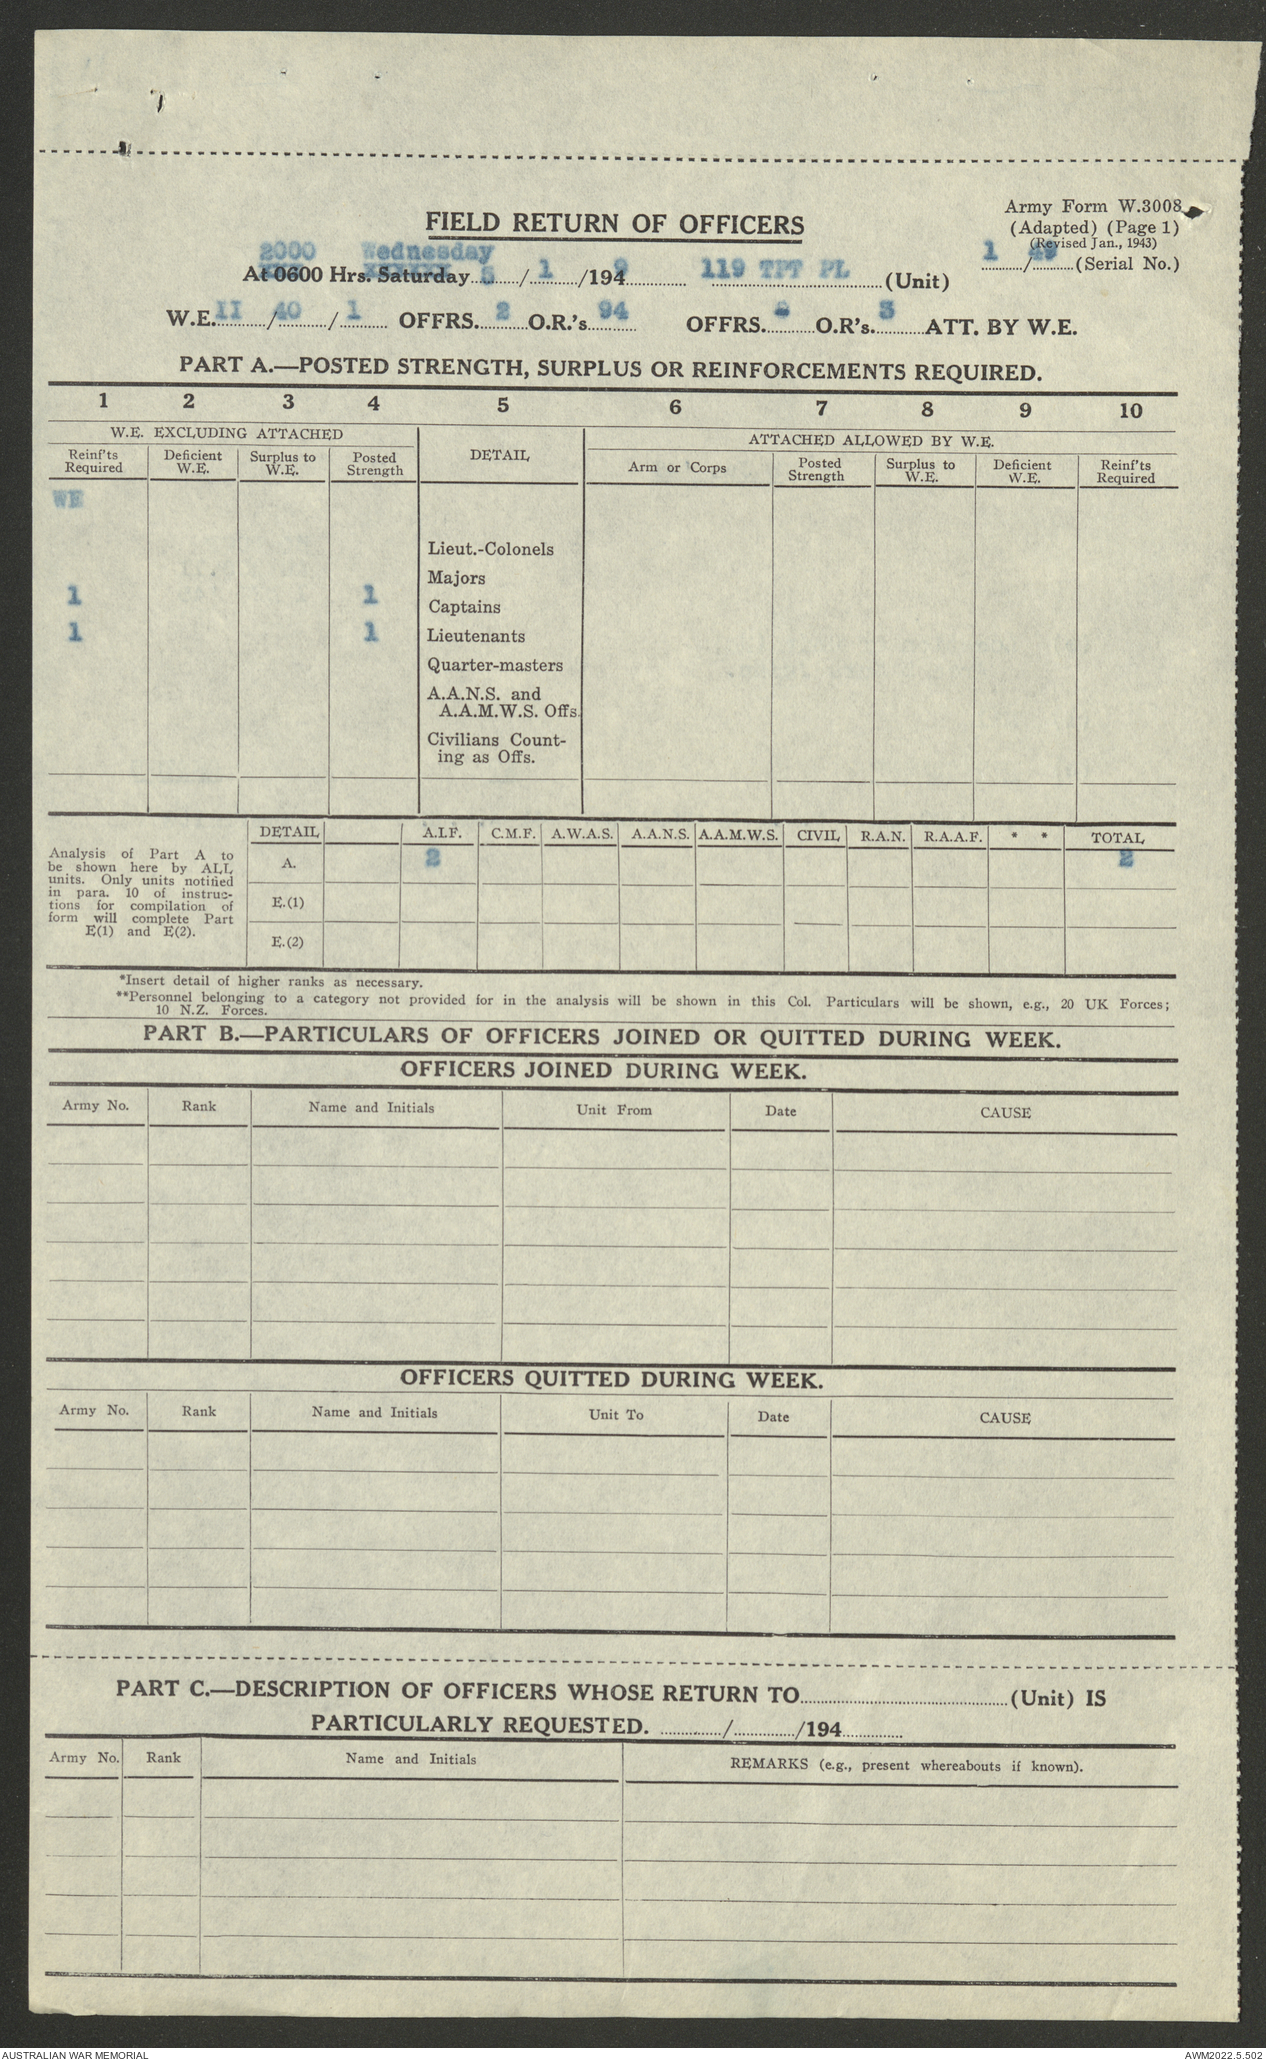 Army Form W.3008
(Adapted) (Page 1)
(Revised Jan., 1943)
1 / 49 (Serial No.)
FIELD RETURN OF OFFICERS
2000 Wednesday
At 0600 Hrs. Saturday 5/1/1949 119 TPT PL (Unit)
W.E. II/40/1 OFFRS. 2 O.R.'s 94 OFFRS. O.R's. 3 ATT. BY W.E.
PART A.—POSTED STRENGTH, SURPLUS OR REINFORCEMENTS REQUIRED.
1 2 3 4 5 6 7 8 9 10
W.E. EXCLUDING ATTACHED DETAIL ATTACHED ALLOWED BY W.E.
Reinf'ts Required Deficient W.E. Surplus to W.E. Posted Strength Arm or Corps Posted Strength Surplus to W.E. Deficient W.E. Reinf'ts Required
WE
Lieut.-Colonels
Majors
1 1 Captains
1 1 Lieutenants
Quarter-masters
A.A.N.S. and
A.A.M.W.S. Offs.
Civilians Count-
ing as Offs.
DETAIL A.I.F. C.M.F. A.W.A.S. A.A.N.S. A.A.M.W.S. CIVIL R.A.N. R.A.A.F. * * TOTAL
Analysis of Part A to
be shown here by ALL
units. Only units notified
in para. 10 of instruc-
tions for compilation of
form will complete Part
E(1) and E(2).
A. 2 2
E.(1)
E.(2)
*Insert detail of higher ranks as necessary.
**Personnel belonging to a category not provided for in the analysis will be shown in this Col. Particulars will be shown, e.g., 20 UK Forces;
10 N.Z. Forces.
PART B.—PARTICULARS OF OFFICERS JOINED OR QUITTED DURING WEEK.
OFFICERS JOINED DURING WEEK.
Army No. Rank Name and Initials Unit From Date CAUSE
OFFICERS QUITTED DURING WEEK.
Army No. Rank Name and Initials Unit To Date CAUSE
PART C.—DESCRIPTION OF OFFICERS WHOSE RETURN TO (Unit) IS
PARTICULARLY REQUESTED. / /194
Army No. Rank Name and Initials REMARKS (e.g., present whereabouts if known).
AUSTRALIAN WAR MEMORIAL AWM2022.5.502